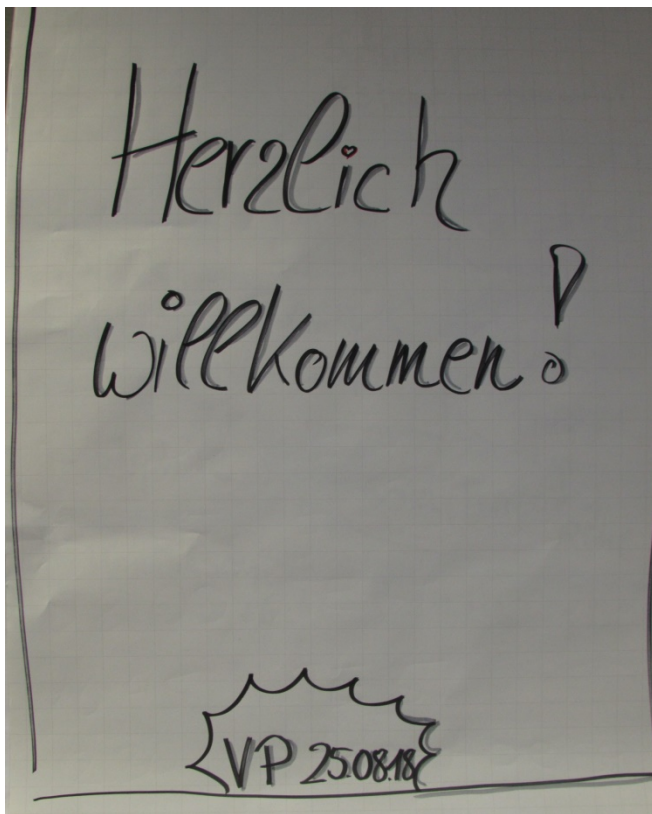 Herzlich
willkommen!
VP 25.08.18